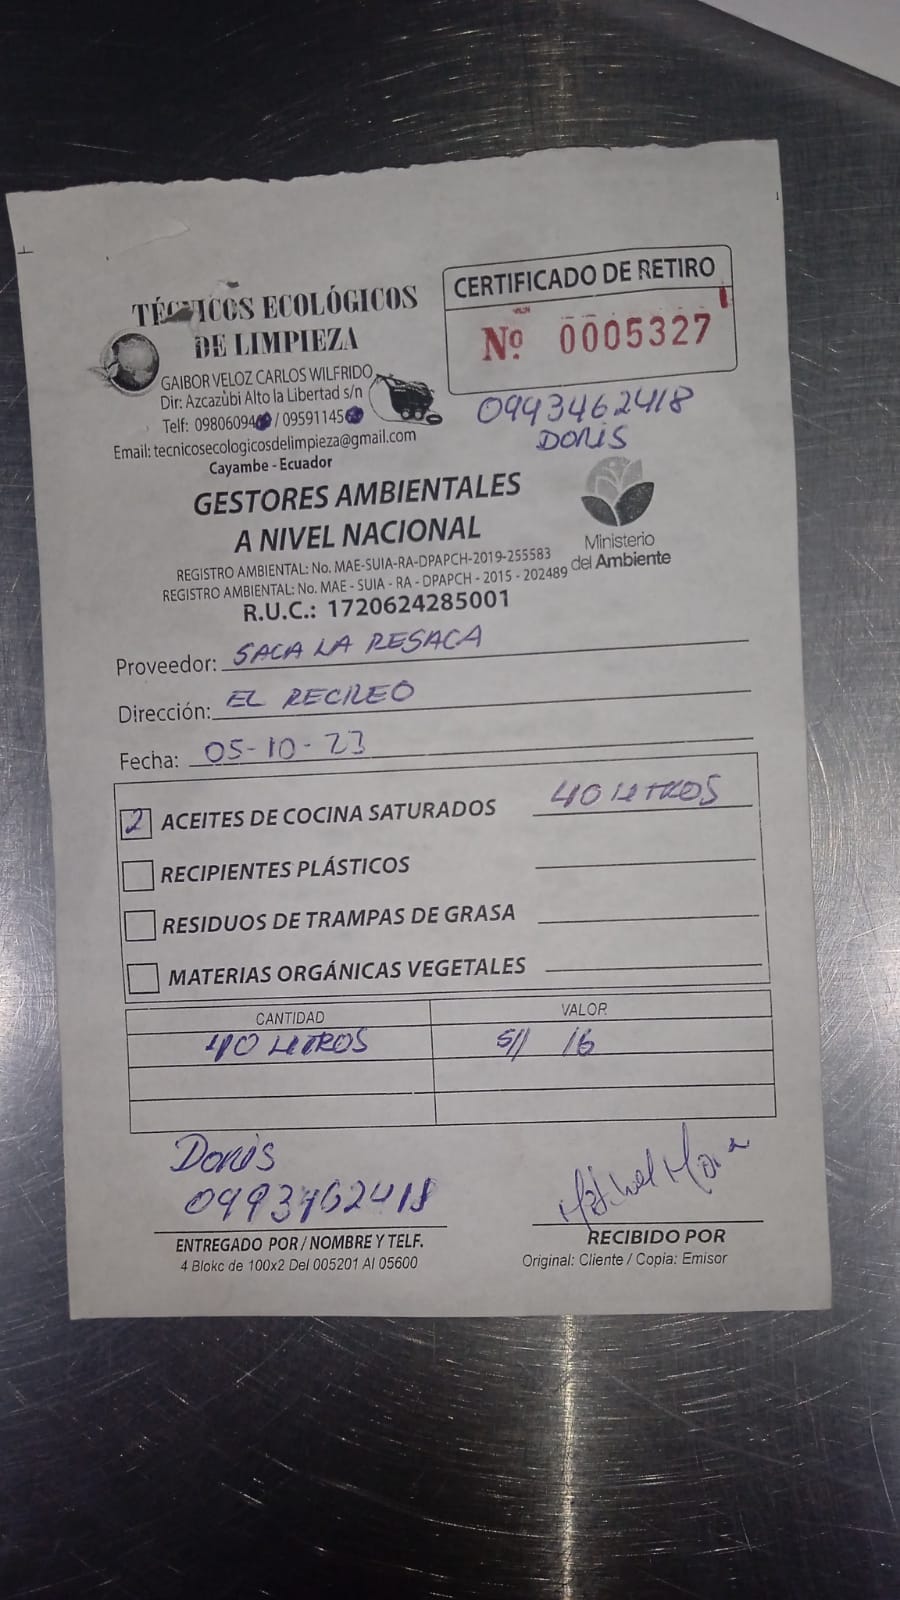 TÉCNICOS ECOLÓGICOS
DE LIMPIEZA
GAIBOR VELOZ CARLOS WILFRIDO
Dir: Azcazubi Alto la Libertad s/n
Telf: 09806094 / 09591145
Email: tecnicosecologicosdelimpieza@gmail.com
Cayambe - Ecuador
CERTIFICADO DE RETIRO
Nº 0005327
0993462418
DORIS
GESTORES AMBIENTALES
A NIVEL NACIONAL
Ministerio
del Ambiente
REGISTRO AMBIENTAL: No. MAE-SUIA-RA-DPAPCH-2019-255583
REGISTRO AMBIENTAL: No. MAE - SUIA - RA - DPAPCH - 2015 - 202489
R.U.C.: 1720624285001
Proveedor: SACA LA RESACA
Dirección: EL RECREO
Fecha: 05-10-23
2 ACEITES DE COCINA SATURADOS 40 LITROS
RECIPIENTES PLÁSTICOS
RESIDUOS DE TRAMPAS DE GRASA
MATERIAS ORGÁNICAS VEGETALES
CANTIDAD VALOR
40 LITROS $// 16
Doris
0993462418
ENTREGADO POR / NOMBRE Y TELF.
RECIBIDO POR
4 Blokc de 100x2 Del 005201 Al 05600
Original: Cliente / Copia: Emisor